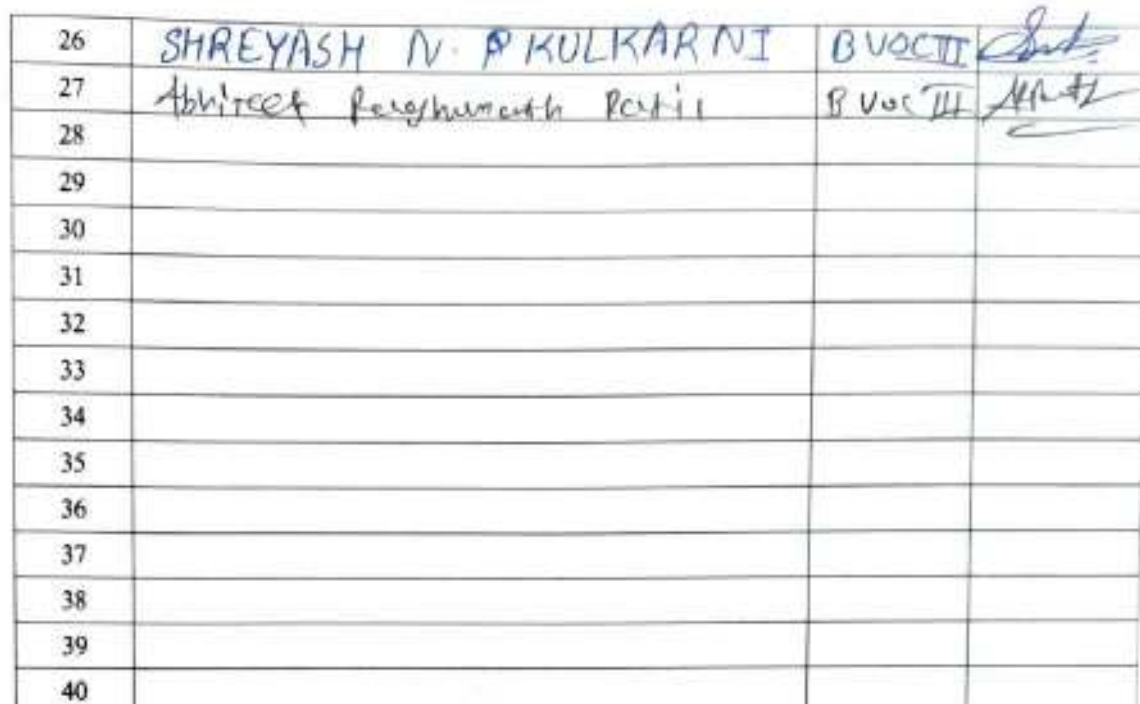 26 SHREYASH N. KULKARNI B VOC III
27 Abhijeet Raghunath Patil B Voc III
28
29
30
31
32
33
34
35
36
37
38
39
40